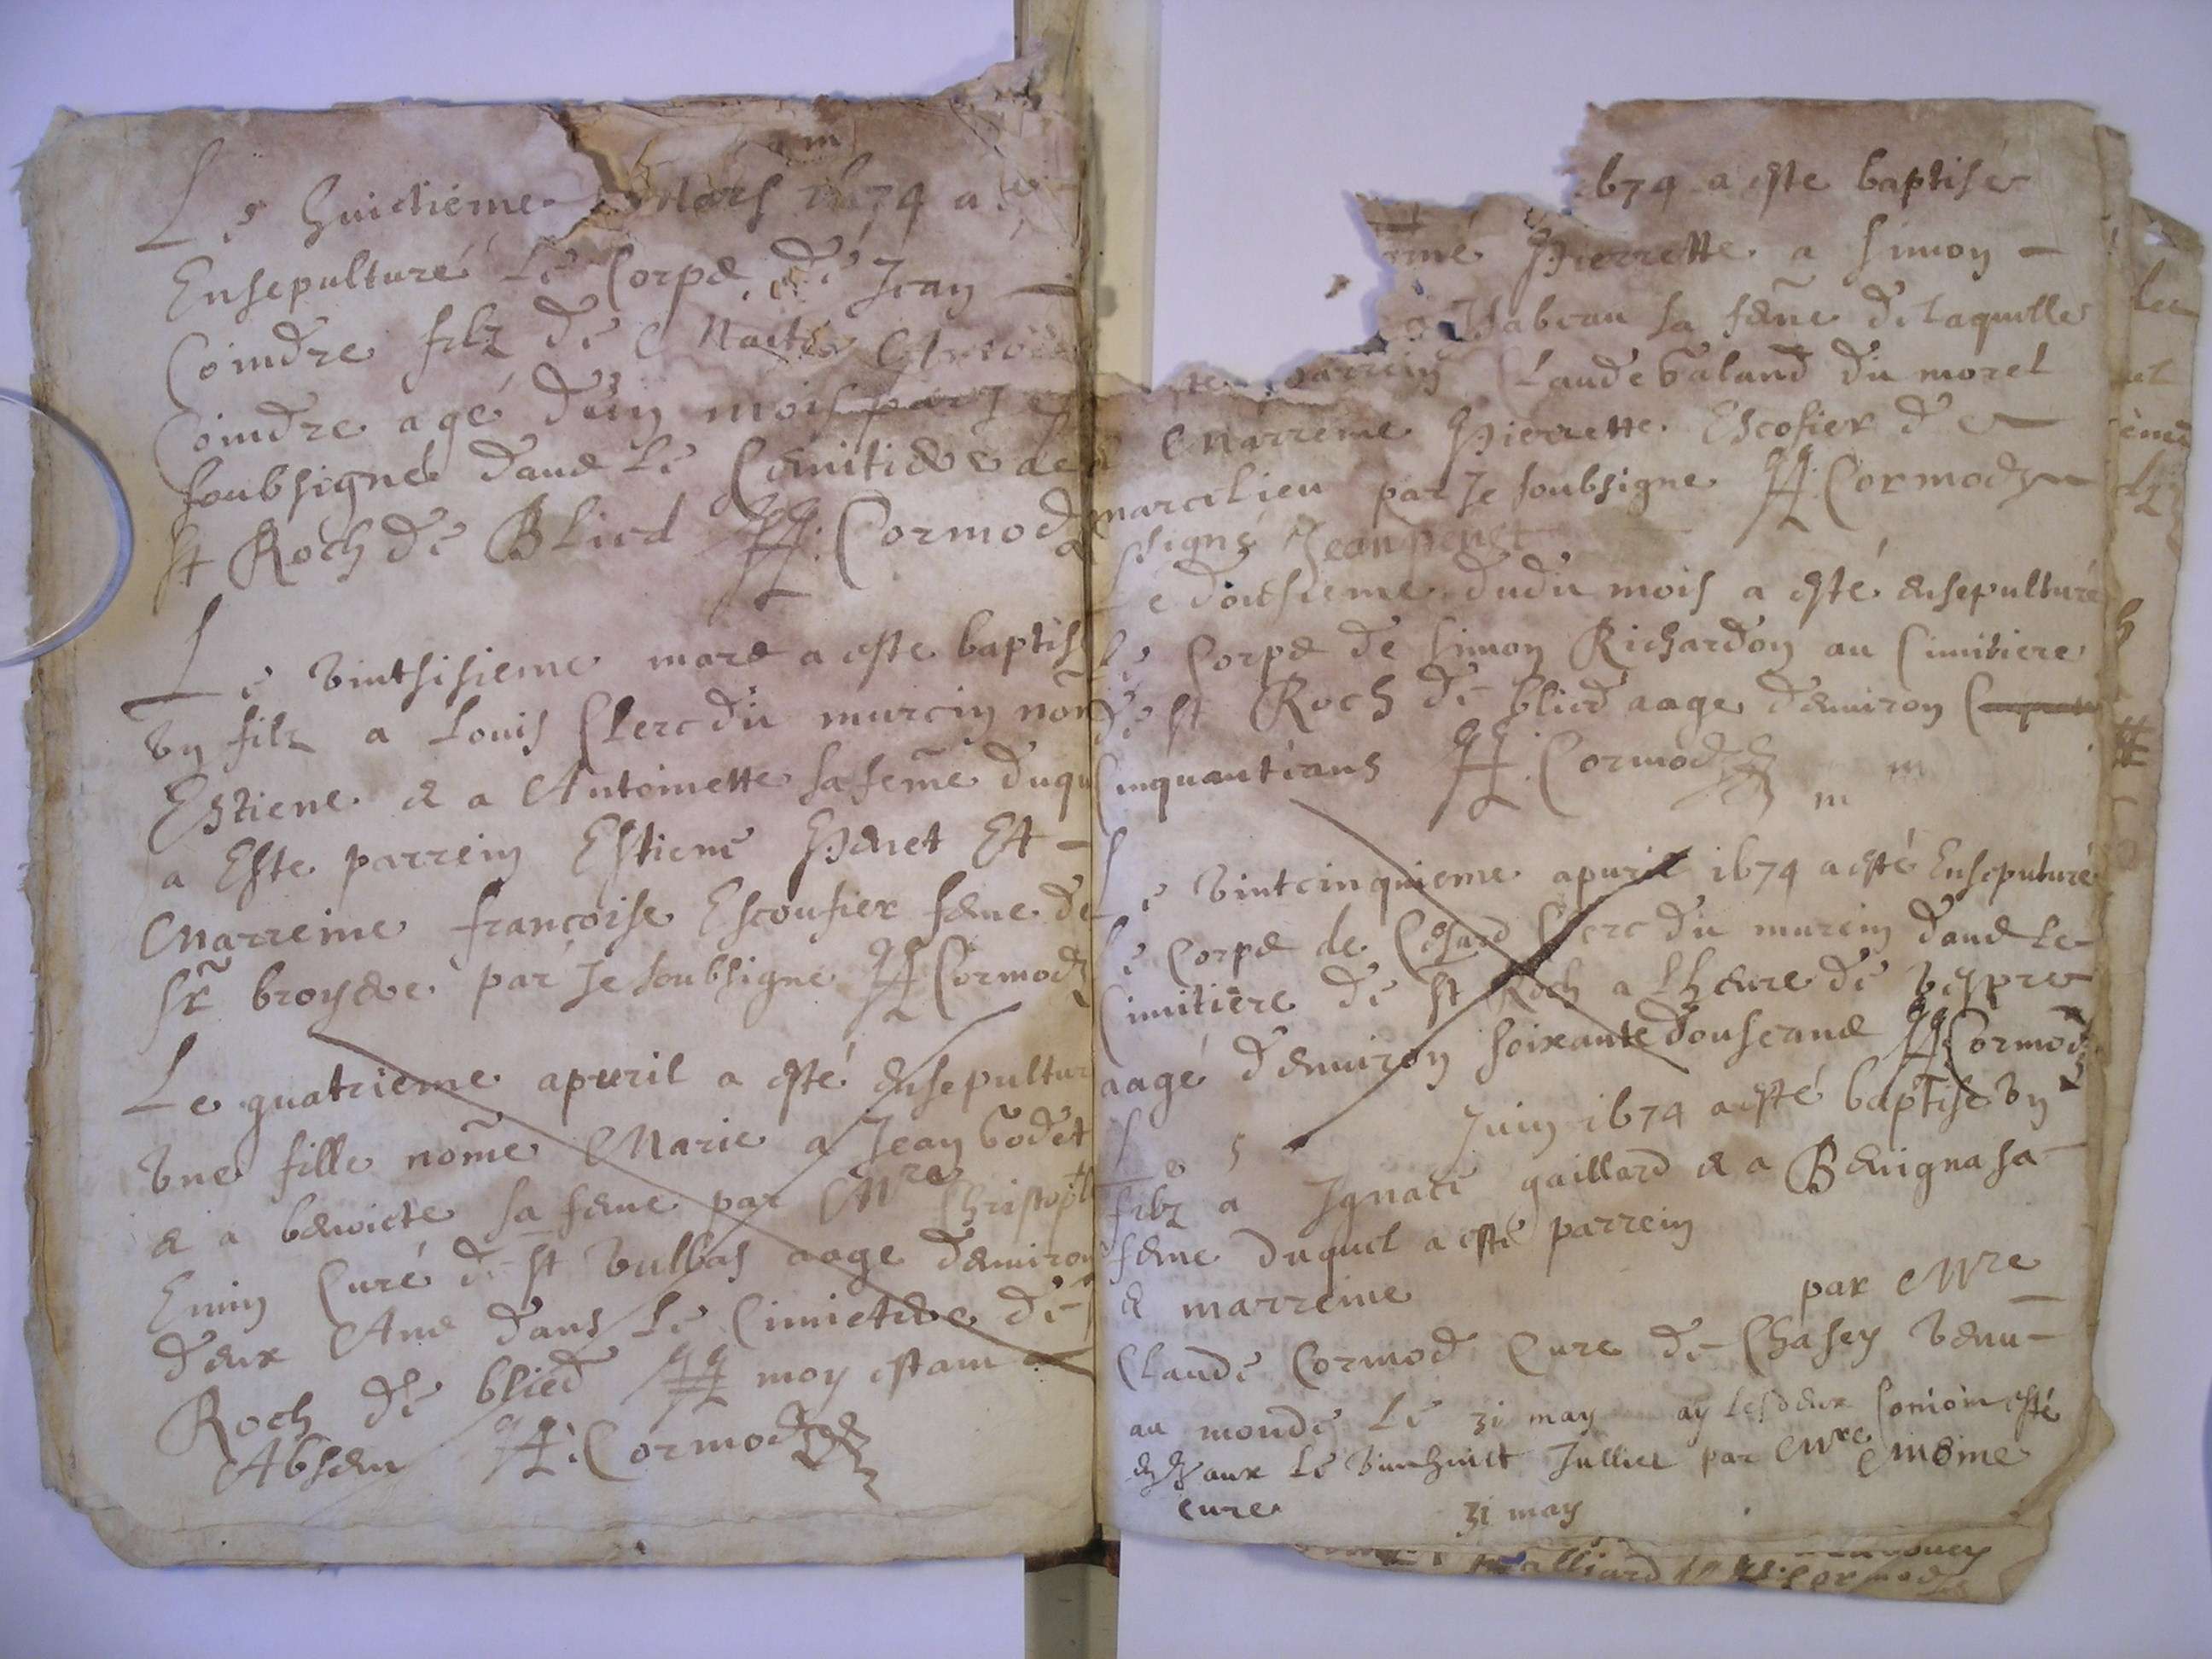 Le huictieme Mars 1674 a
Ensepulturé le Corps de Jean
Coindre filz de
Coindre agé d'un mois par Je
soubsigné dans le Cemitiere de
St Roch de Blied Cormod
Le vintsisieme mars a este baptis
vn filz a Louis Clerc du murcin nom
Estiene & a Antoinette sa feme duqu
a Este parrein Estiene Penet Et
Marreine françoise Escoufier feme de
Sr broyere par Je soubsigne Cormod
Le quatrieme apuril a esté ensepultur
vne fille nomé Marie a Jean Godet
& a benoicte sa feme par Mre Christophe
Curé de St Vulbas aage denuiron
deux Ans dans le Cimictere de
Roch de blied moy estam
Absen Cormod
1674 a este baptisé
mé Pierrette a Simon
Isabeau sa feme de laquelle
parrein Claude Galand du morel
Marreine Pierrette Escofier de
marcilieu par Je soubsigne Cormod
signé Jean penet
Le dousieme dudit mois a esté ensepulturé
le Corps de Simon Richardon au Cimitiere
de St Roch de blied aage denuiron
Cinquanteans Cormod
m
m
Le vintcinquieme apuril 1674 a esté Enseputuré
le Corps de Cesard Clerc du murcin dans le
Cimitiere de St Roch a lheure de vespre
aagé denuiron soixante douseans Cormod
Le 5 Juin 1674 a esté baptise vn
filz a Ignace gaillard & a Benigna sa
feme duquel a esté parrein
& marreine par Mre
Claude Cormod Cure de Chasey venu
au monde le 31 may
le vinthuict Jullet par Mre
cure 31 may